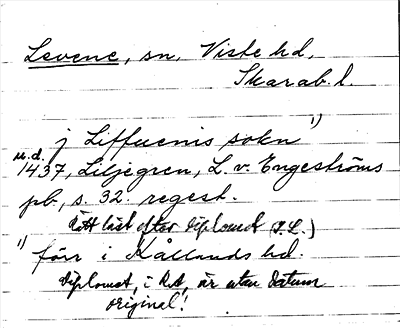 Levene, sn, Viste hd,
Skarab. l.
j Liffuenis sokn 1)
u.d.
1437, Liljegren, L. v. Engeströms
pb, s. 32. regest.
rätt läst efter diplomet (I.L.)
1) förr i Kållands hd.
Diplomet, i RA, är utan datum
original!